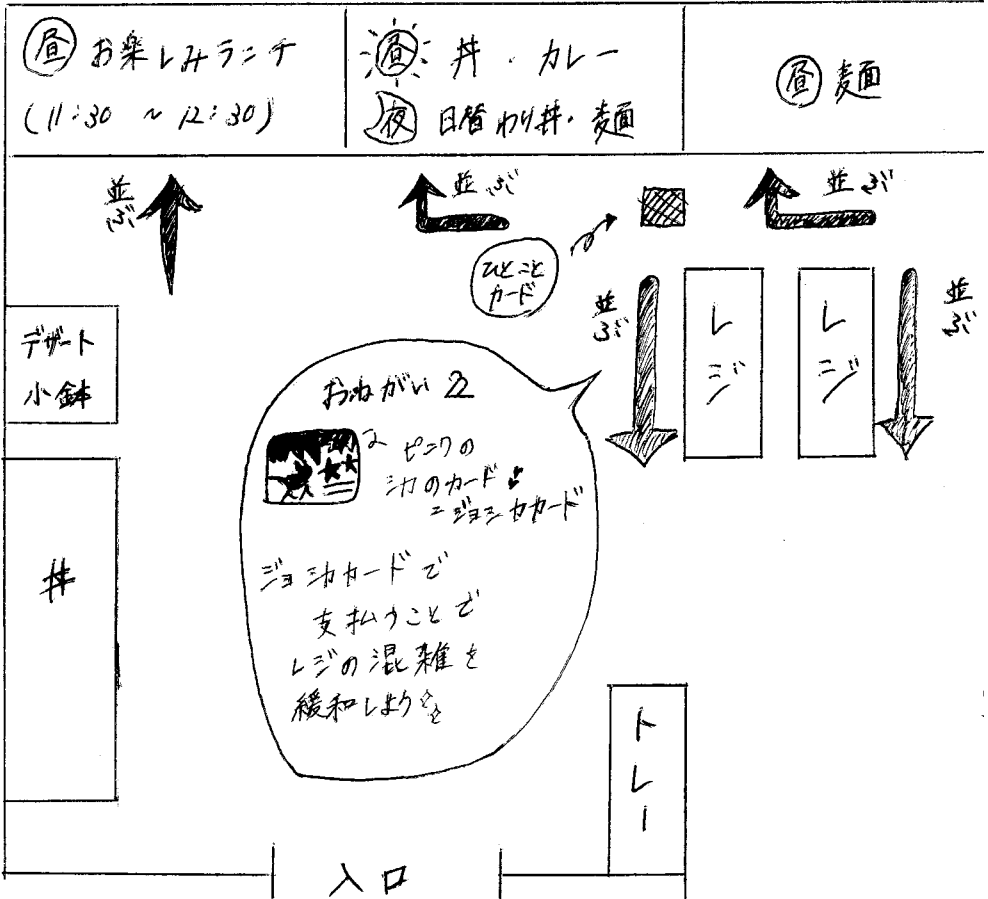 昼 お楽しみランチ
(11:30 ~ 12:30)
昼 丼・カレー
夜 日替わり丼・麺
昼 麺
並ぶ
並ぶ
並ぶ
ひとこと
カード
並ぶ
レジ
レジ
並ぶ
デザート
小鉢
おねがい
ピンクの
シカのカード
=ジョシカカード
ジョシカカードで
支払うことで
レジの混雑を
緩和しよう
丼
トレー
入口